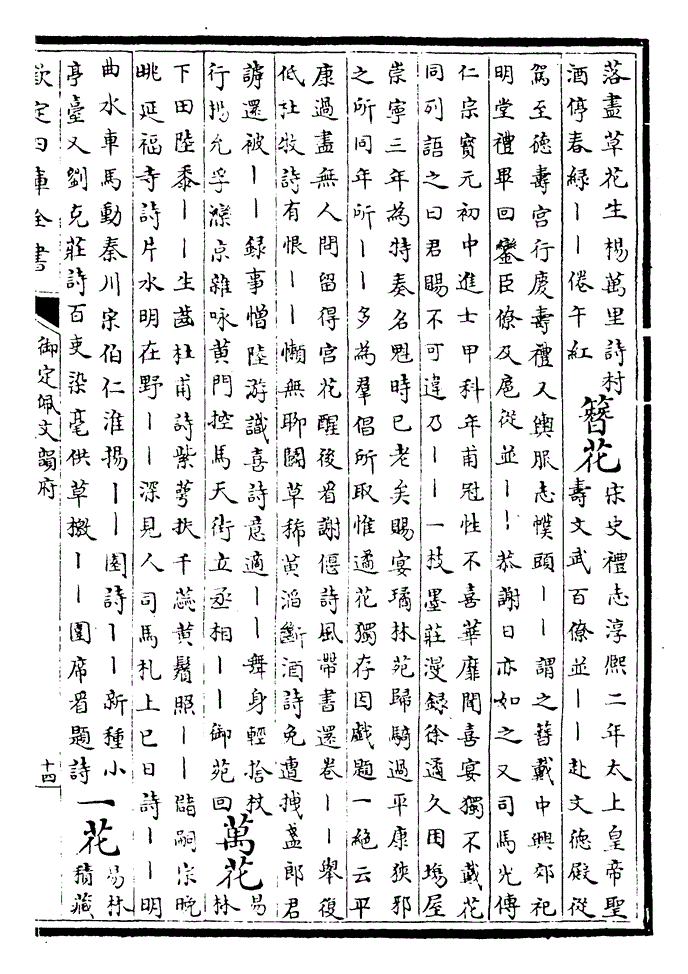 落盡草花生楊萬里詩村
酒停春綠丨丨倦午紅
簪花
宋史禮志淳熙二年太上皇帝聖
壽文武百僚並丨丨赴文德殿從
駕至德壽宮行慶壽禮又輿服志幞頭丨丨謂之簪戴中興郊祀
明堂禮畢回鑾臣僚及扈從並丨丨恭謝日亦如之又司馬光傳
仁宗寶元初中進士甲科年甫冠性不喜華靡聞喜宴獨不戴花
同列語之曰君賜不可違乃丨丨一枝墨莊漫錄徐遹久困塲屋
崇寧三年為特奏名魁時已老矣賜宴瓊林苑歸騎過平康狹邪
之所同年所丨丨多為羣倡所取惟遹花獨存因戲題一絕云平
康過盡無人問留得宮花醒後看謝偃詩風帶書還卷丨丨舉復
低杜牧詩有恨丨丨懶無聊鬭草稀黃滔斷酒詩免遭拽盞郎君
謔還被丨丨録事憎陸游識喜詩意適丨丨舞身輕捨杖
行楊允孚灤京雜咏黃門控馬天街立丞相丨丨御苑回
萬花
易林
下田陸黍丨丨生茁杜甫詩紫萼扶千蕊黃鬚照丨丨儲嗣宗晚
眺延福寺詩片水明在野丨丨深見人司馬札上巳日詩丨丨明
曲水車馬動秦川宋伯仁淮揚丨丨園詩丨丨新種小
亭臺又劉克莊詩百吏染毫供草檄丨丨圍席看題詩
一花
易林
積藏
欽定四庫全書
御定佩文韻府
十四